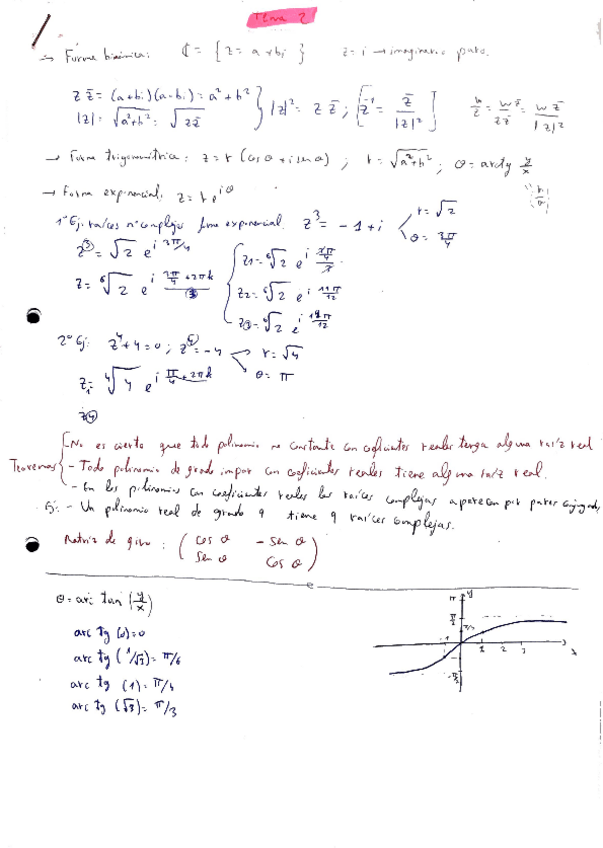 Tema 2
→ Forma binómica: ℂ = { z = a + bi } z = i → imaginario puro.
z z̄ = (a+bi)(a-bi) = a² + b² } |z|² = z z̄ ; [ z⁻¹ = z̄ / |z|² ] w/z = w z̄ / z z̄ = w z̄ / |z|²
|z| = √(a²+b²) = √(z z̄)
→ Forma trigonométrica: z = r (cos θ + i sen θ) ; r = √(a²+b²) ; θ = arctg y/x
→ Forma exponencial: z = r e^{iθ}
1º Ej: raíces nº complejos forma exponencial. z³ = -1 + i r = √2
θ = 3π/4
z³ = √2 e^{i 3π/4}
z = ⁶√2 e^{i (3π/4 + 2πk)/3}
z₁ = ⁶√2 e^{i (3π/4)/3}
z₂ = ⁶√2 e^{i 11π/12}
z₃ = ⁶√2 e^{i 19π/12}
2º Ej: z⁴ + 4 = 0 ; z⁴ = -4 r = √4
θ = π
z₁ = ⁴√4 e^{i π/4 + 2πk}
z④
Teoremas { - No es cierto que todo polinomio no constante con coeficientes reales tenga alguna raíz real
- Todo polinomio de grado impar con coeficientes reales tiene alguna raíz real.
- En los polinomios con coeficientes reales las raíces complejas aparecen por pares conjugados
Ej: - Un polinomio real de grado 9 tiene 9 raíces complejas.
Matriz de giro : ( cos θ - sen θ
sen θ cos θ )
θ = arc tan (y/x)
arc tg (0) = 0
arc tg (1/√3) = π/6
arc tg (1) = π/4
arc tg (√3) = π/3
π y
π/2
π/3
-1 1 2 3 x
-π/2